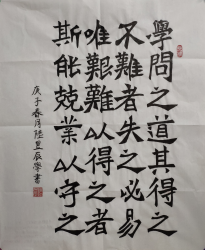 學問之道其得之
不難者失之必易
唯艱難以得之者
斯能兢業以守之
庚子春月陸昱辰書